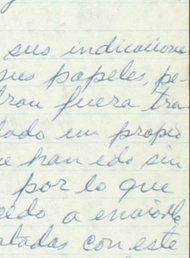 sus indicaciones
sus papeles, pe-
dran fuera tran
lado un propio
ue han ido sin
por lo que
cedo a enviarle
atadas con este